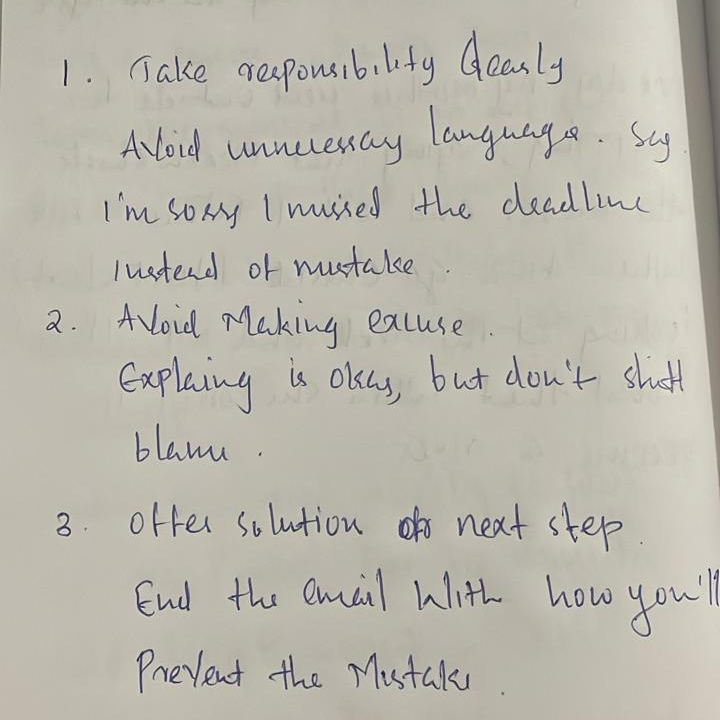 1. Take responsibility Clearly
Avoid unnecessay language. Say
I'm sorry I missed the deadline
Instead of mistake.
2. Avoid Making excuse.
Explaing is okay, but don't shift
blame.
3. Offer solution or next step.
End the email With how you'll
Prevent the Mistake.